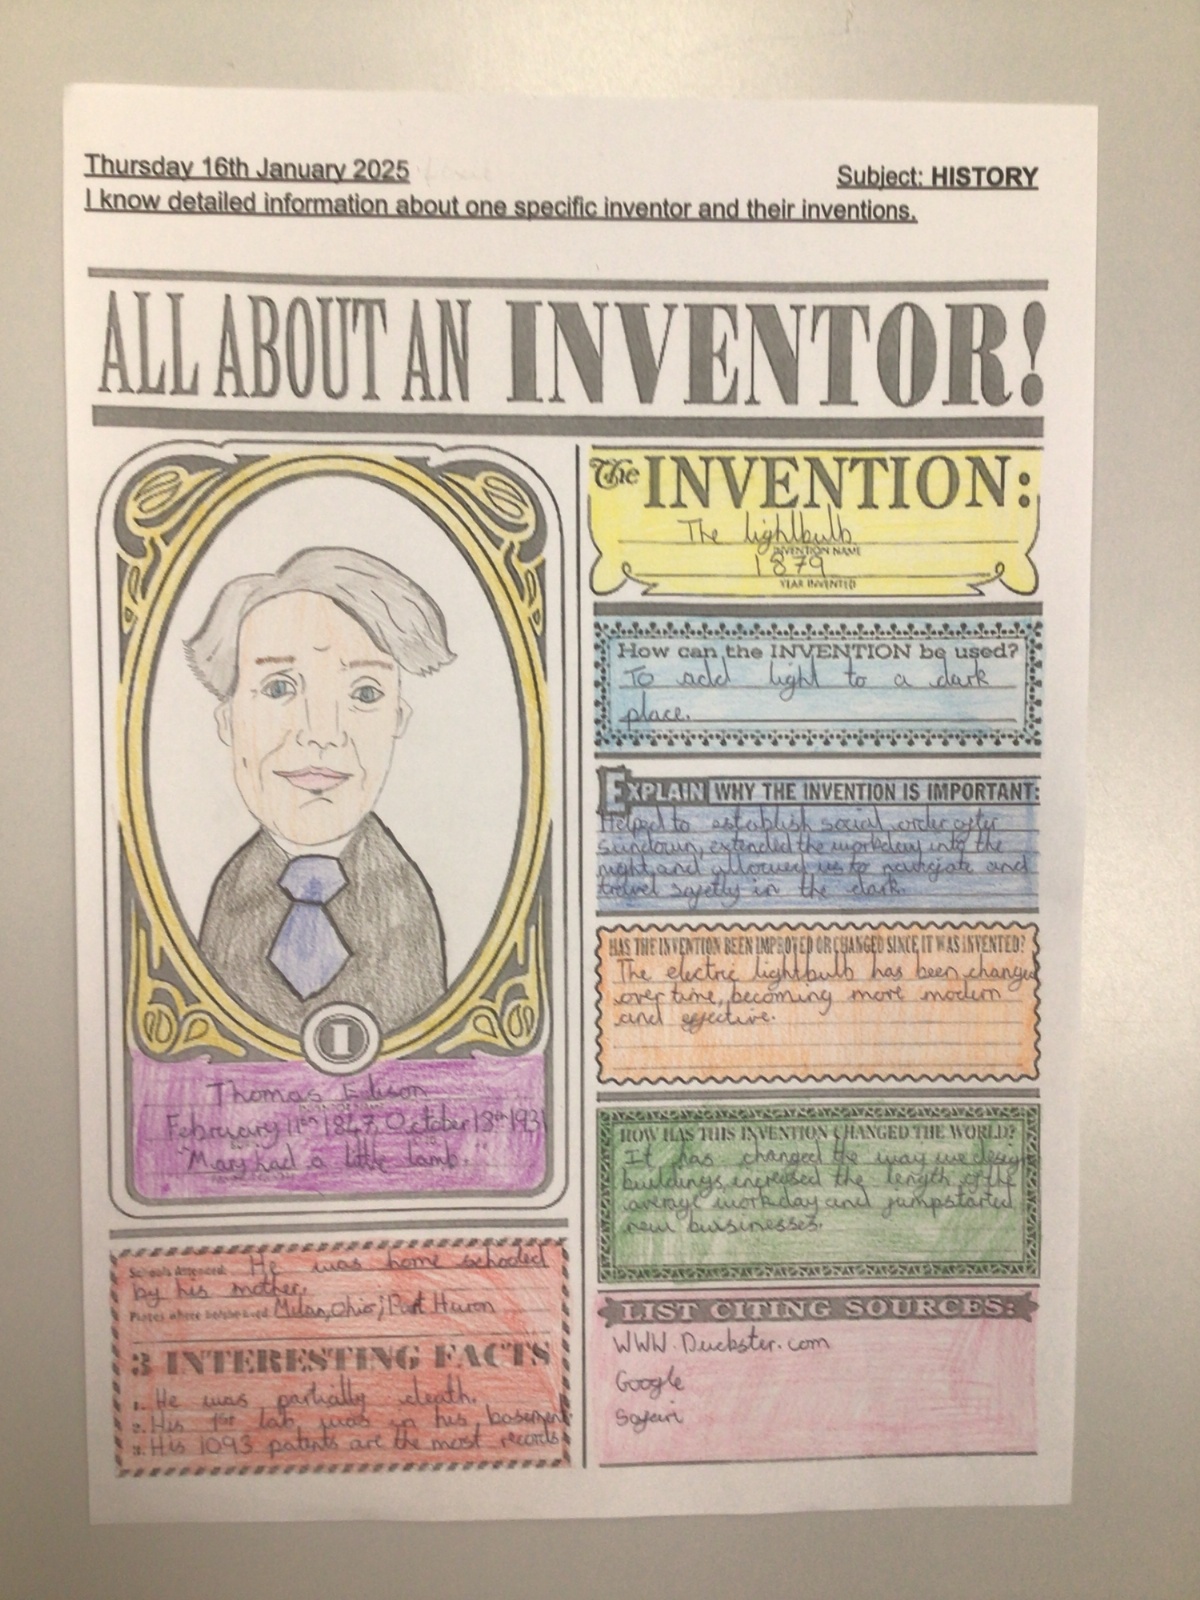 Thursday 16th January 2025
Subject: HISTORY
I know detailed information about one specific inventor and their inventions.
ALL ABOUT AN INVENTOR!
I
Thomas Edison
February 11th 1847, October 18th 1931
"Mary had a little lamb."
Schools Attended: He was home schooled
by his mother.
Places where Milan, Ohio; Port Huron
3 INTERESTING FACTS
1. He was partially death.
2. His 1st lab, was in his basement
3. His 1093 patents are the most records
The INVENTION:
The lightbulb
INVENTION NAME
1879
YEAR INVENTED
How can the INVENTION be used?
To add light to a dark
place.
EXPLAIN WHY THE INVENTION IS IMPORTANT:
Helped to establish social order after
sundown, extended the workday into the
night, and allowed us to navigate and
travel safetly in the dark.
HAS THE INVENTION BEEN IMPROVED OR CHANGED SINCE IT WAS INVENTED?
The electric lightbulb has been changed
over time, becoming more modern
and effective.
HOW HAS THIS INVENTION CHANGED THE WORLD?
It has changed the way we design
buildings, increased the length of the
average workday and jumpstarted
new buisinesses.
LIST CITING SOURCES:
WWW.Duckster.com
Google
Safari